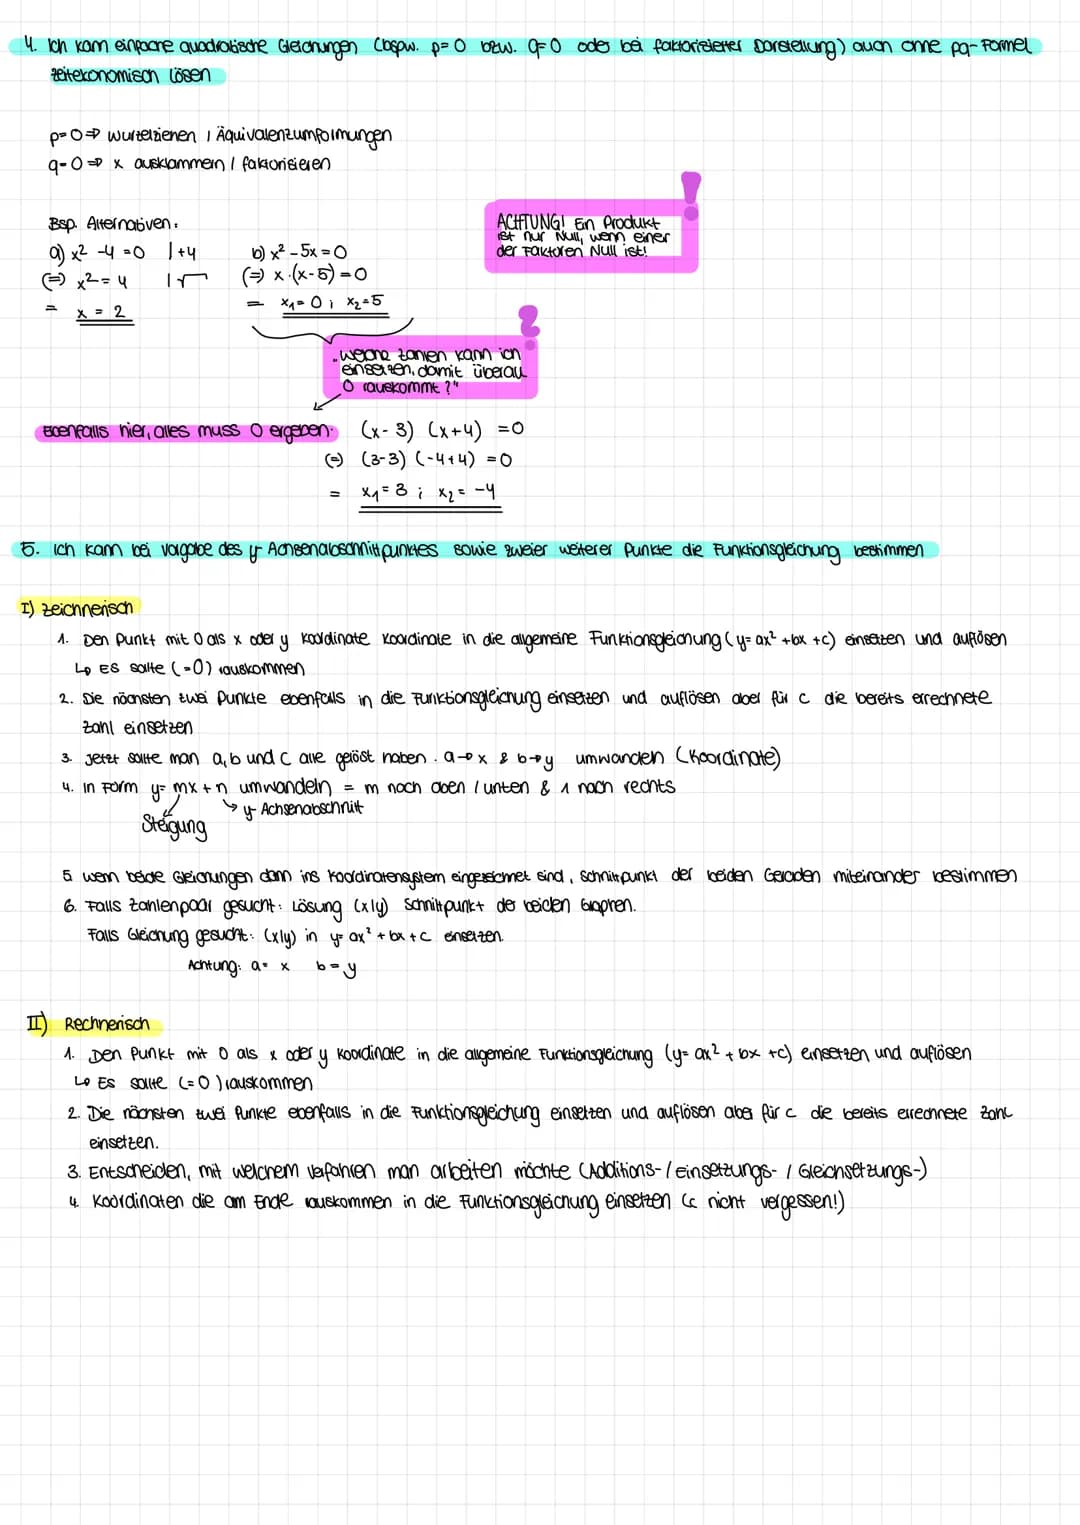 4. Ich kann einfache quadratische Gleichungen (bspw. p=0 bzw. q=0 oder bei faktorisierter Darstellung) auch ohne pq-Formel
zeitekonomisch lösen
p=0 ⇒ wurzelziehen / Äquivalenzumformungen
q=0 ⇒ x ausklammern / faktorisieren
ACHTUNG! Ein Produkt
ist nur Null, wenn einer
der Faktoren Null ist!
Bsp. Alternativen:
a) x² -4 =0 |+4
(=) x² = 4 |√
= x = 2
b) x² - 5x = 0
(=) x·(x-5) = 0
= x₁= 0 ; x₂=5
"welche Zahlen kann ich
einsetzen, damit überall
0 rauskommt?"
Ebenfalls hier, alles muss 0 ergeben: (x-3) (x+4) =0
(=) (3-3) (-4+4) =0
= x₁= 3 ; x₂= -4
5. Ich kann bei Vorgabe des y-Achsenabschnittpunktes sowie zweier weiterer Punkte die Funktionsgleichung bestimmen
I) zeichnerisch
1. Den Punkt mit 0 als x oder y Koordinate Koordinate in die allgemeine Funktionsgleichung (y= ax² +bx +c) einsetzen und auflösen
↳ ES sollte (=0) rauskommen
2. Die nächsten zwei Punkte ebenfalls in die Funktionsgleichung einsetzen und auflösen aber für c die bereits errechnete
Zahl einsetzen
3. Jetzt sollte man a, b und c alle gelöst haben. a→x & b→y umwandeln (Koordinate)
4. In Form y= mx+n umwandeln = m nach oben / unten & 1 nach rechts
Steigung
y-Achsenabschnitt
5 wenn beide Gleichungen dann ins Koordinatensystem eingezeichnet sind, Schnittpunkt der beiden Geraden miteinander bestimmen
6. Falls Zahlenpaar gesucht: Lösung (x|y) Schnittpunkt der beiden Graphen.
Falls Gleichung gesucht: (x|y) in y= ax² + bx + c einsetzen.
Achtung: a= x b=y
II) Rechnerisch
1. Den Punkt mit 0 als x oder y Koordinate in die allgemeine Funktionsgleichung (y= ax² + bx +c) einsetzen und auflösen
↳ ES sollte (=0) rauskommen
2. Die nächsten zwei Punkte ebenfalls in die Funktionsgleichung einsetzen und auflösen aber für c die bereits errechnete Zahl
einsetzen.
3. Entscheiden, mit welchem Verfahren man arbeiten möchte (Additions-/Einsetzungs- / Gleichsetzungs-)
4. Koordinaten die am Ende rauskommen in die Funktionsgleichung einsetzen (c nicht vergessen!)